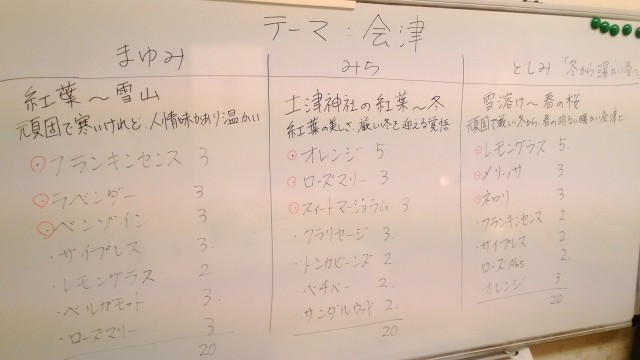 テーマ：会津
まゆみ
紅葉～雪山
頑固で寒いけれど、人情味があり温かい
フランキンセンス 3
ラベンダー 3
ベンゾイン 3
・サイプレス 3
・レモングラス 2
・ベルガモット 3
・ローズマリー 3
20
みち
土津神社の紅葉～冬
紅葉の美しさ、厳しい冬を迎える覚悟
オレンジ 5
ローズマリー 3
スイートマージョラム 3
・クラリセージ 3
・トンカビーンズ 2
・ベチバー 2
・サンダルウッド 2
20
としみ 「冬から暖かい春へ
雪溶け～春の桜
頑固で厳しい冬から、春の明るい暖かい会津に
レモングラス 5
メリッサ 3
ネロリ 3
・フランキンセンス 2
・サイプレス 2
・ローズAbs 2
・オレンジ 3
20